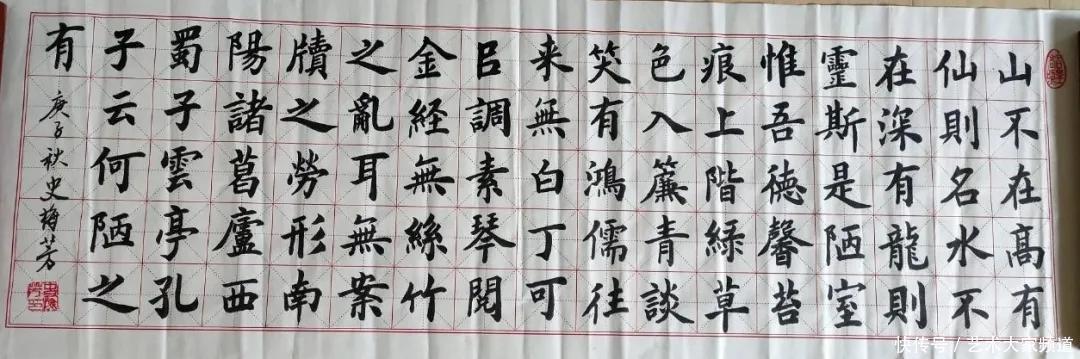 山不在高有
仙則名水不
在深有龍則
靈斯是陋室
惟吾德馨苔
痕上階緑草
色入簾青談
笑有鴻儒往
来無白丁可
㠯調素琴閱
金経無絲竹
之亂耳無案
牘之勞形南
陽諸葛廬西
蜀子雲亭孔
子云何陋之
有
庚子秋史梅芳
快传号 / 艺术大家频道